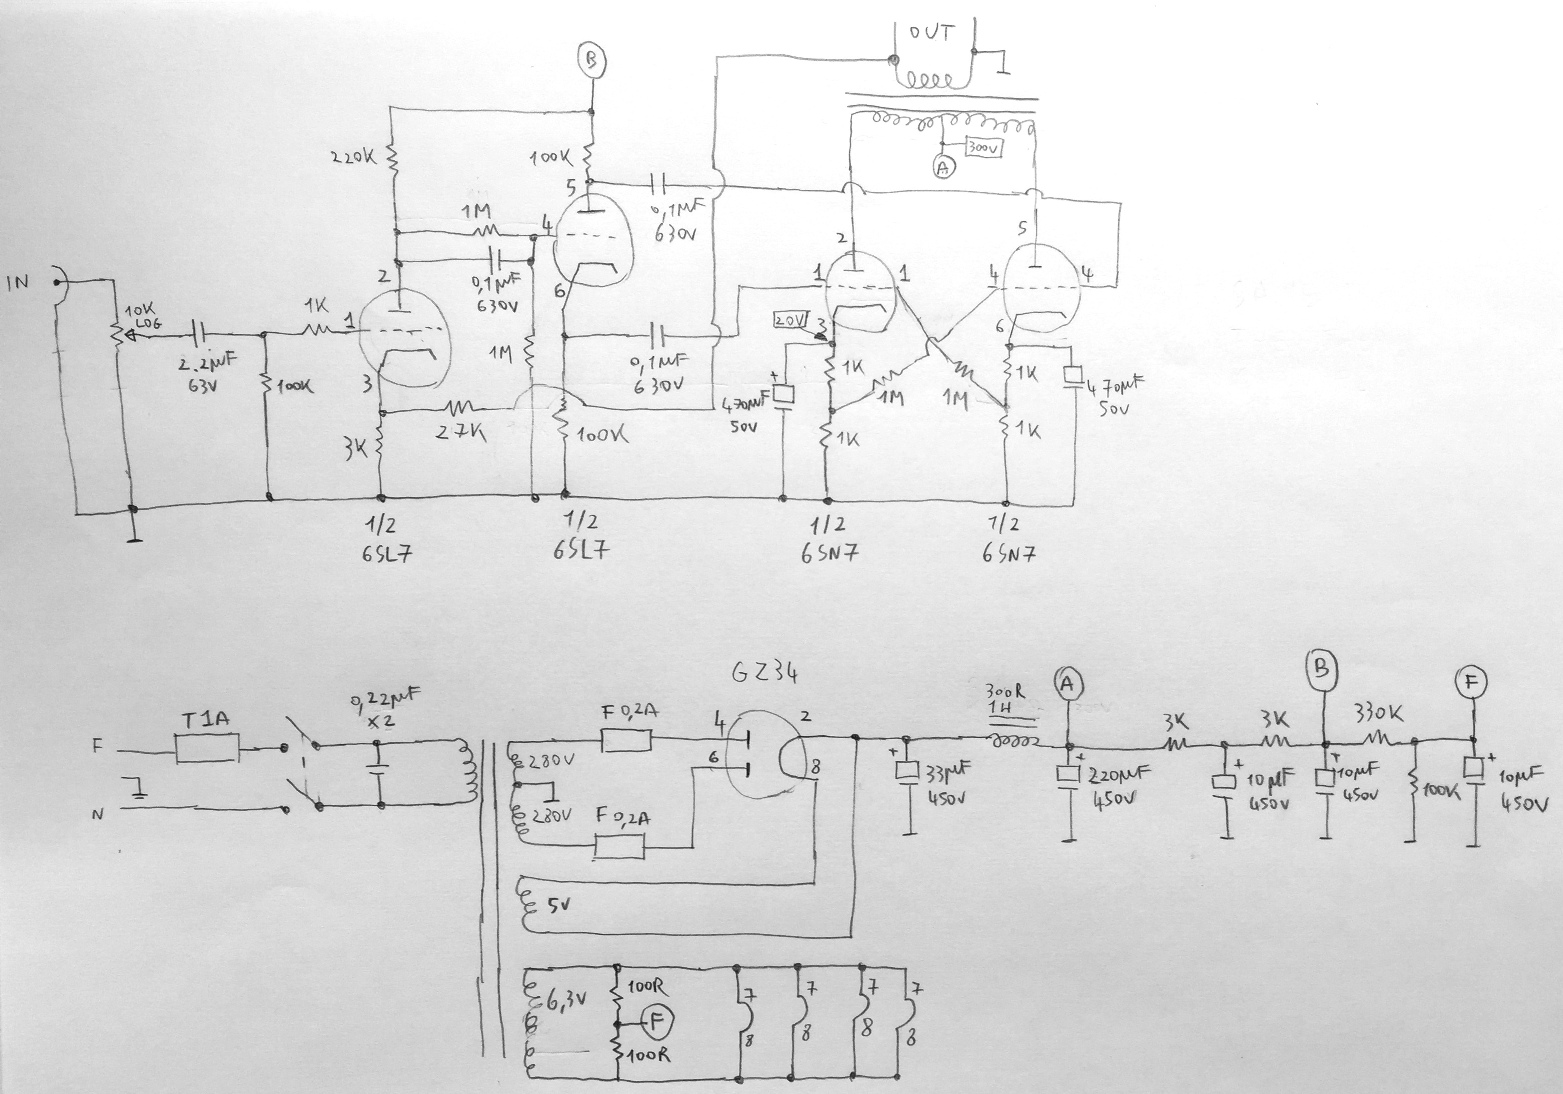 OUT
B
220K
100K
5
300V
A
1M
4
0,1µF
630V
2
5
IN
10K
LOG
1K
1
2
0,1µF
630V
6
1
1
4
4
2.2µF
63V
100K
3
1M
0,1µF
630V
20V
3
6
1K
1K
+
470µF
50V
1M
1M
470µF
50V
27K
3K
100K
1K
1K
1/2
6SL7
1/2
6SL7
1/2
6SN7
1/2
6SN7
GZ34
0,22µF
X2
T1A
F
N
F 0,2A
280V
280V
F 0,2A
4
6
2
8
+
33µF
450V
300R
1H
A
+
220µF
450V
3K
+
10µF
450V
3K
B
+
10µF
450V
330K
100K
F
+
10µF
450V
5V
6,3V
100R
F
100R
7
8
7
8
7
8
7
8